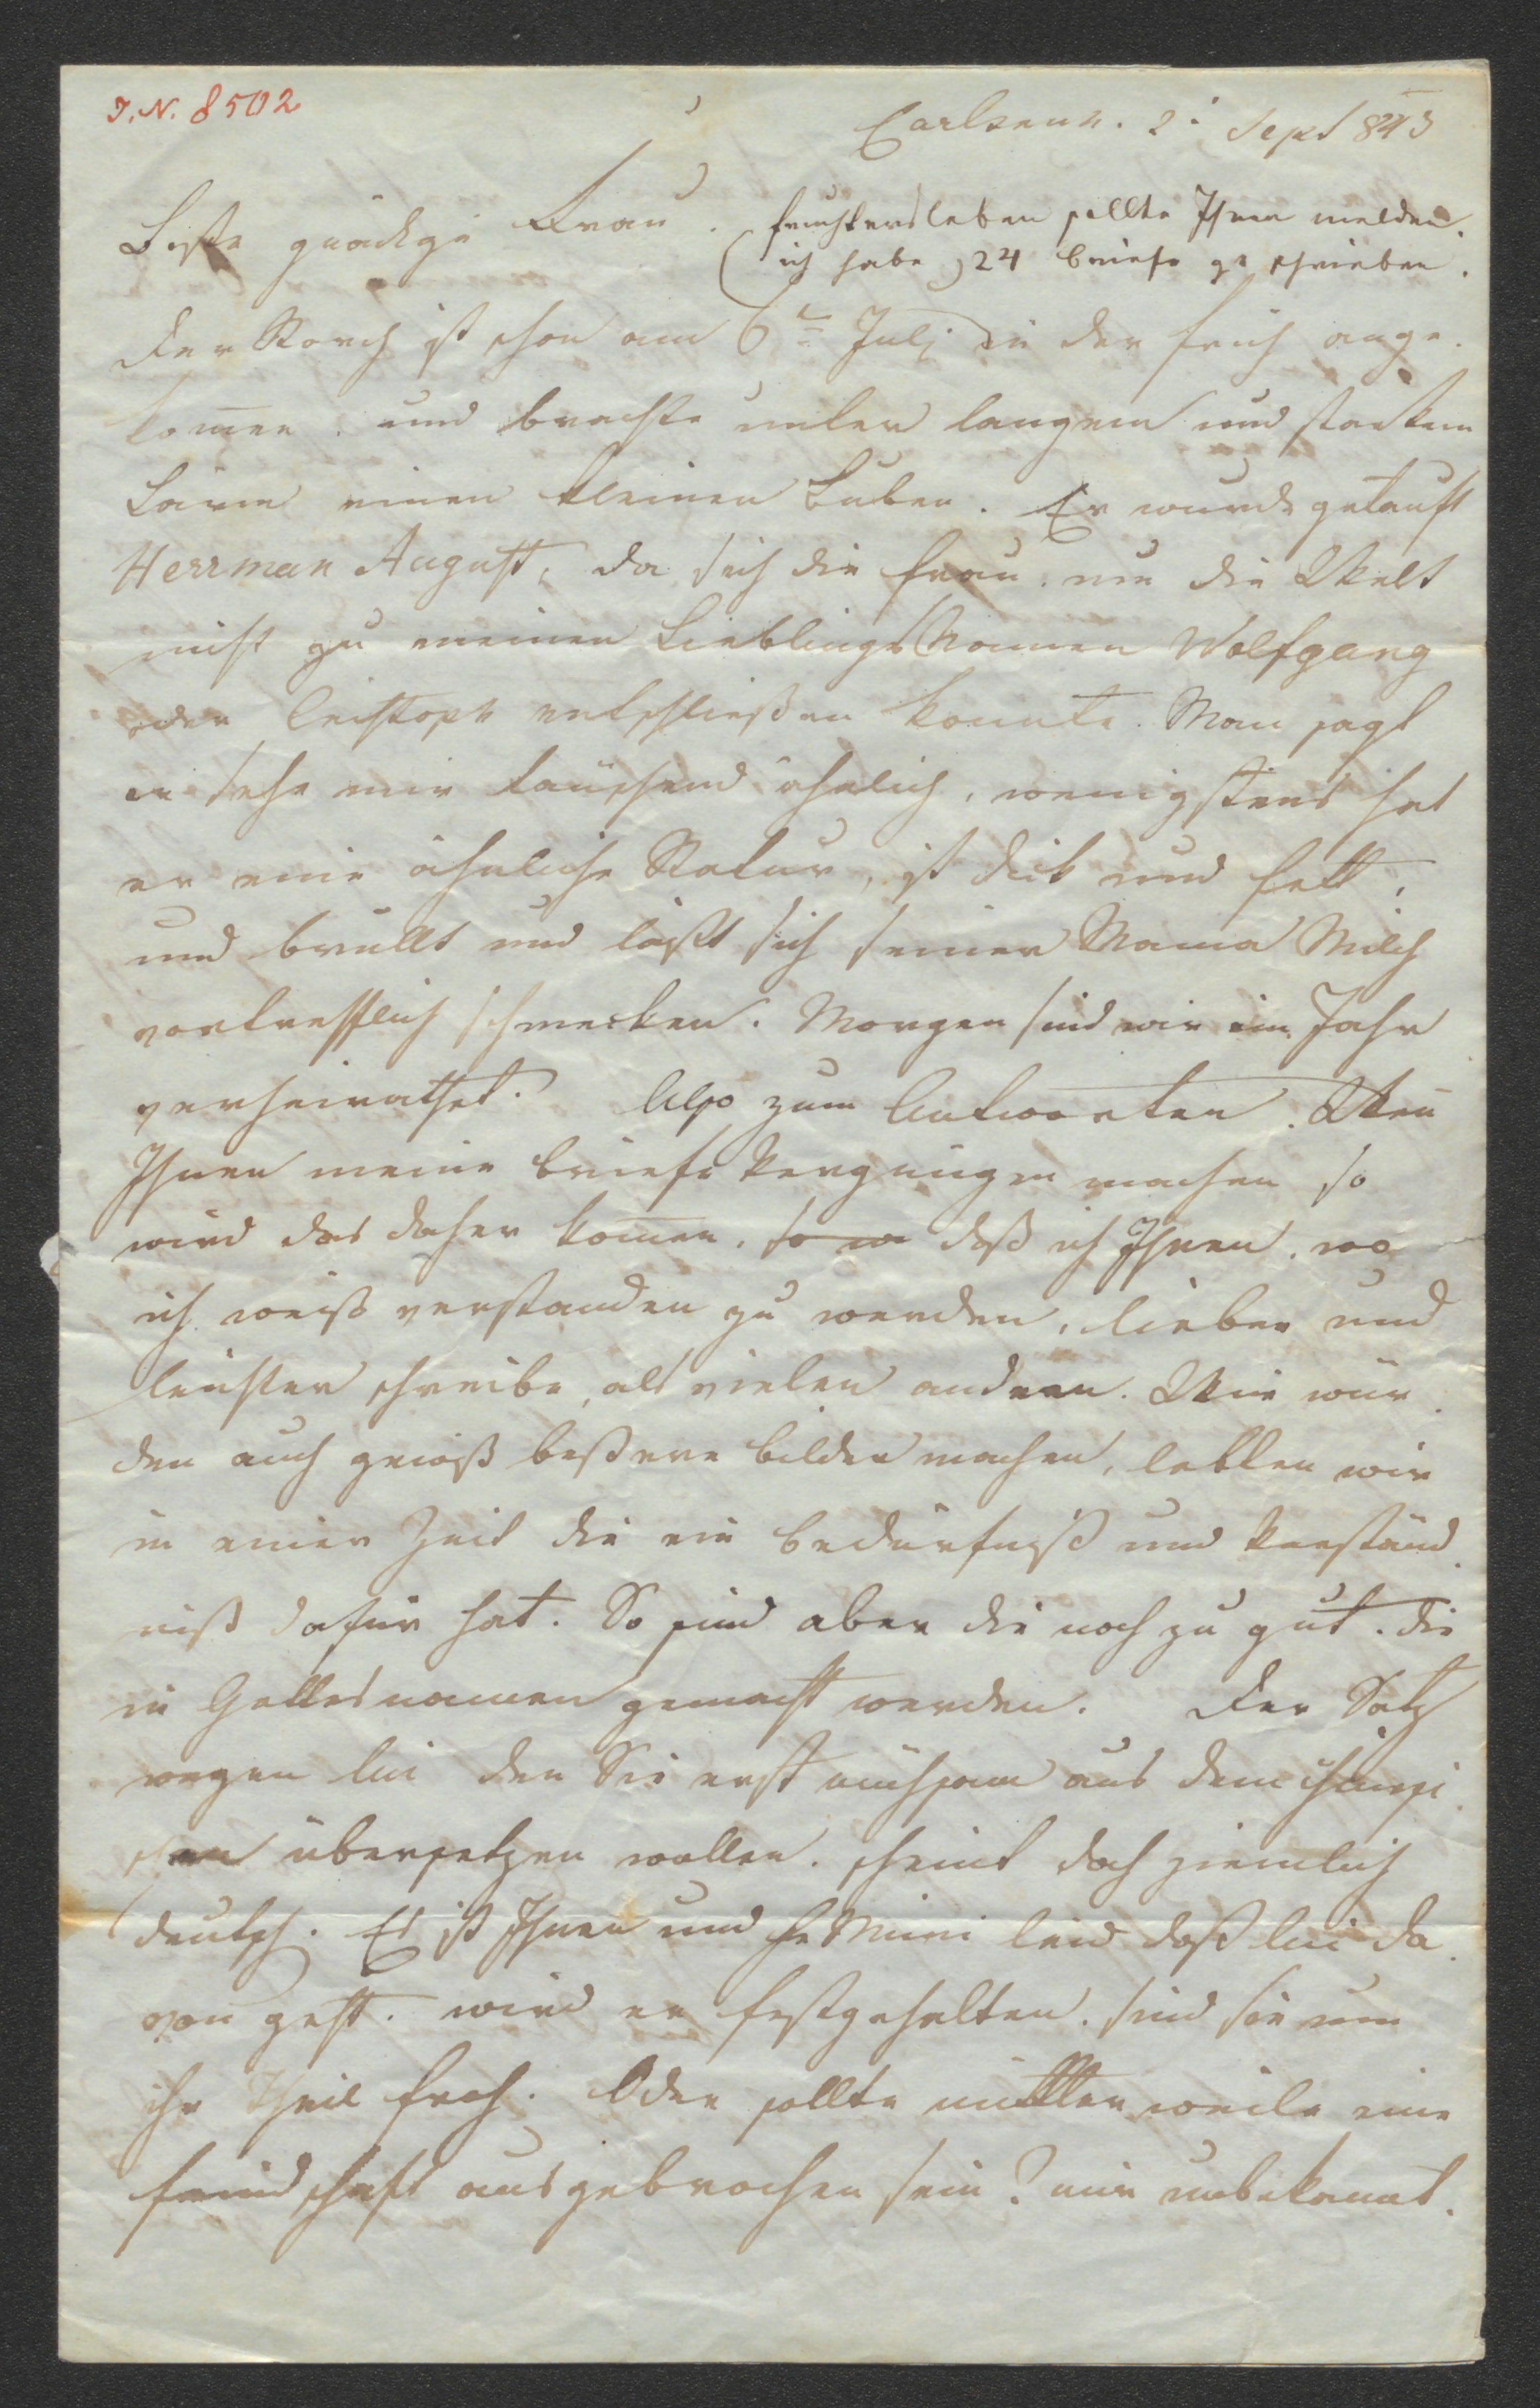 J. N. 8502
Carlsruh. 2. Sept 843
Beste gnädige Frau.
feuchtersleben sollte Ihnen melden.
(ich habe 24 briefe geschrieben.
Der Storch ist schon am 6ten Julj in der früh ange-
kom̄en. und brachte unter langem und starkem
Lärm einen kleinen Buben. Er wurde getauft
Herrman August, da sich die frau um die Welt
nicht zu meinen Lieblings Namen Wolfgang
oder Cristoph entschließen konnte. Man sagt
er sehe mir täuschend ähnlich, wenigstens hat
er eine ähnliche Statur, ist dick und fett,
und brüllt und läßt sich seiner Mama Milch
vortrefflich schmecken. Morgen sind wir ein Jahr
verheirathet. Also zum Antworten. Wen̄
Ihnen meine briefe Vergnügen machen so
wird das daher kom̄en, so w daß ich Ihnen, wo
ich weiß verstanden zu werden, lieber und
leichter schreibe, als vielen andern. Wir wür-
den auch gewiß beßere bilder machen, lebten wir
in einer Zeit die ein bedürfniß und Verständ-
niß dafür hat. So sind aber die noch zu gut. die
in Gottesnamen gemacht werden. Der Satz
wegen lui den Sie erst mühsam aus dem chinesi-
schen übersetzen wollen. scheint doch ziemlich
deutsch. Es ist Ihnen und fr Mimi leid daß lui da-
von geht. wird er festgehalten. sind sie um
ihr Theil froh. Oder sollte mittlerweile eine
feindschaft ausgebrochen sein? mir unbekannt.